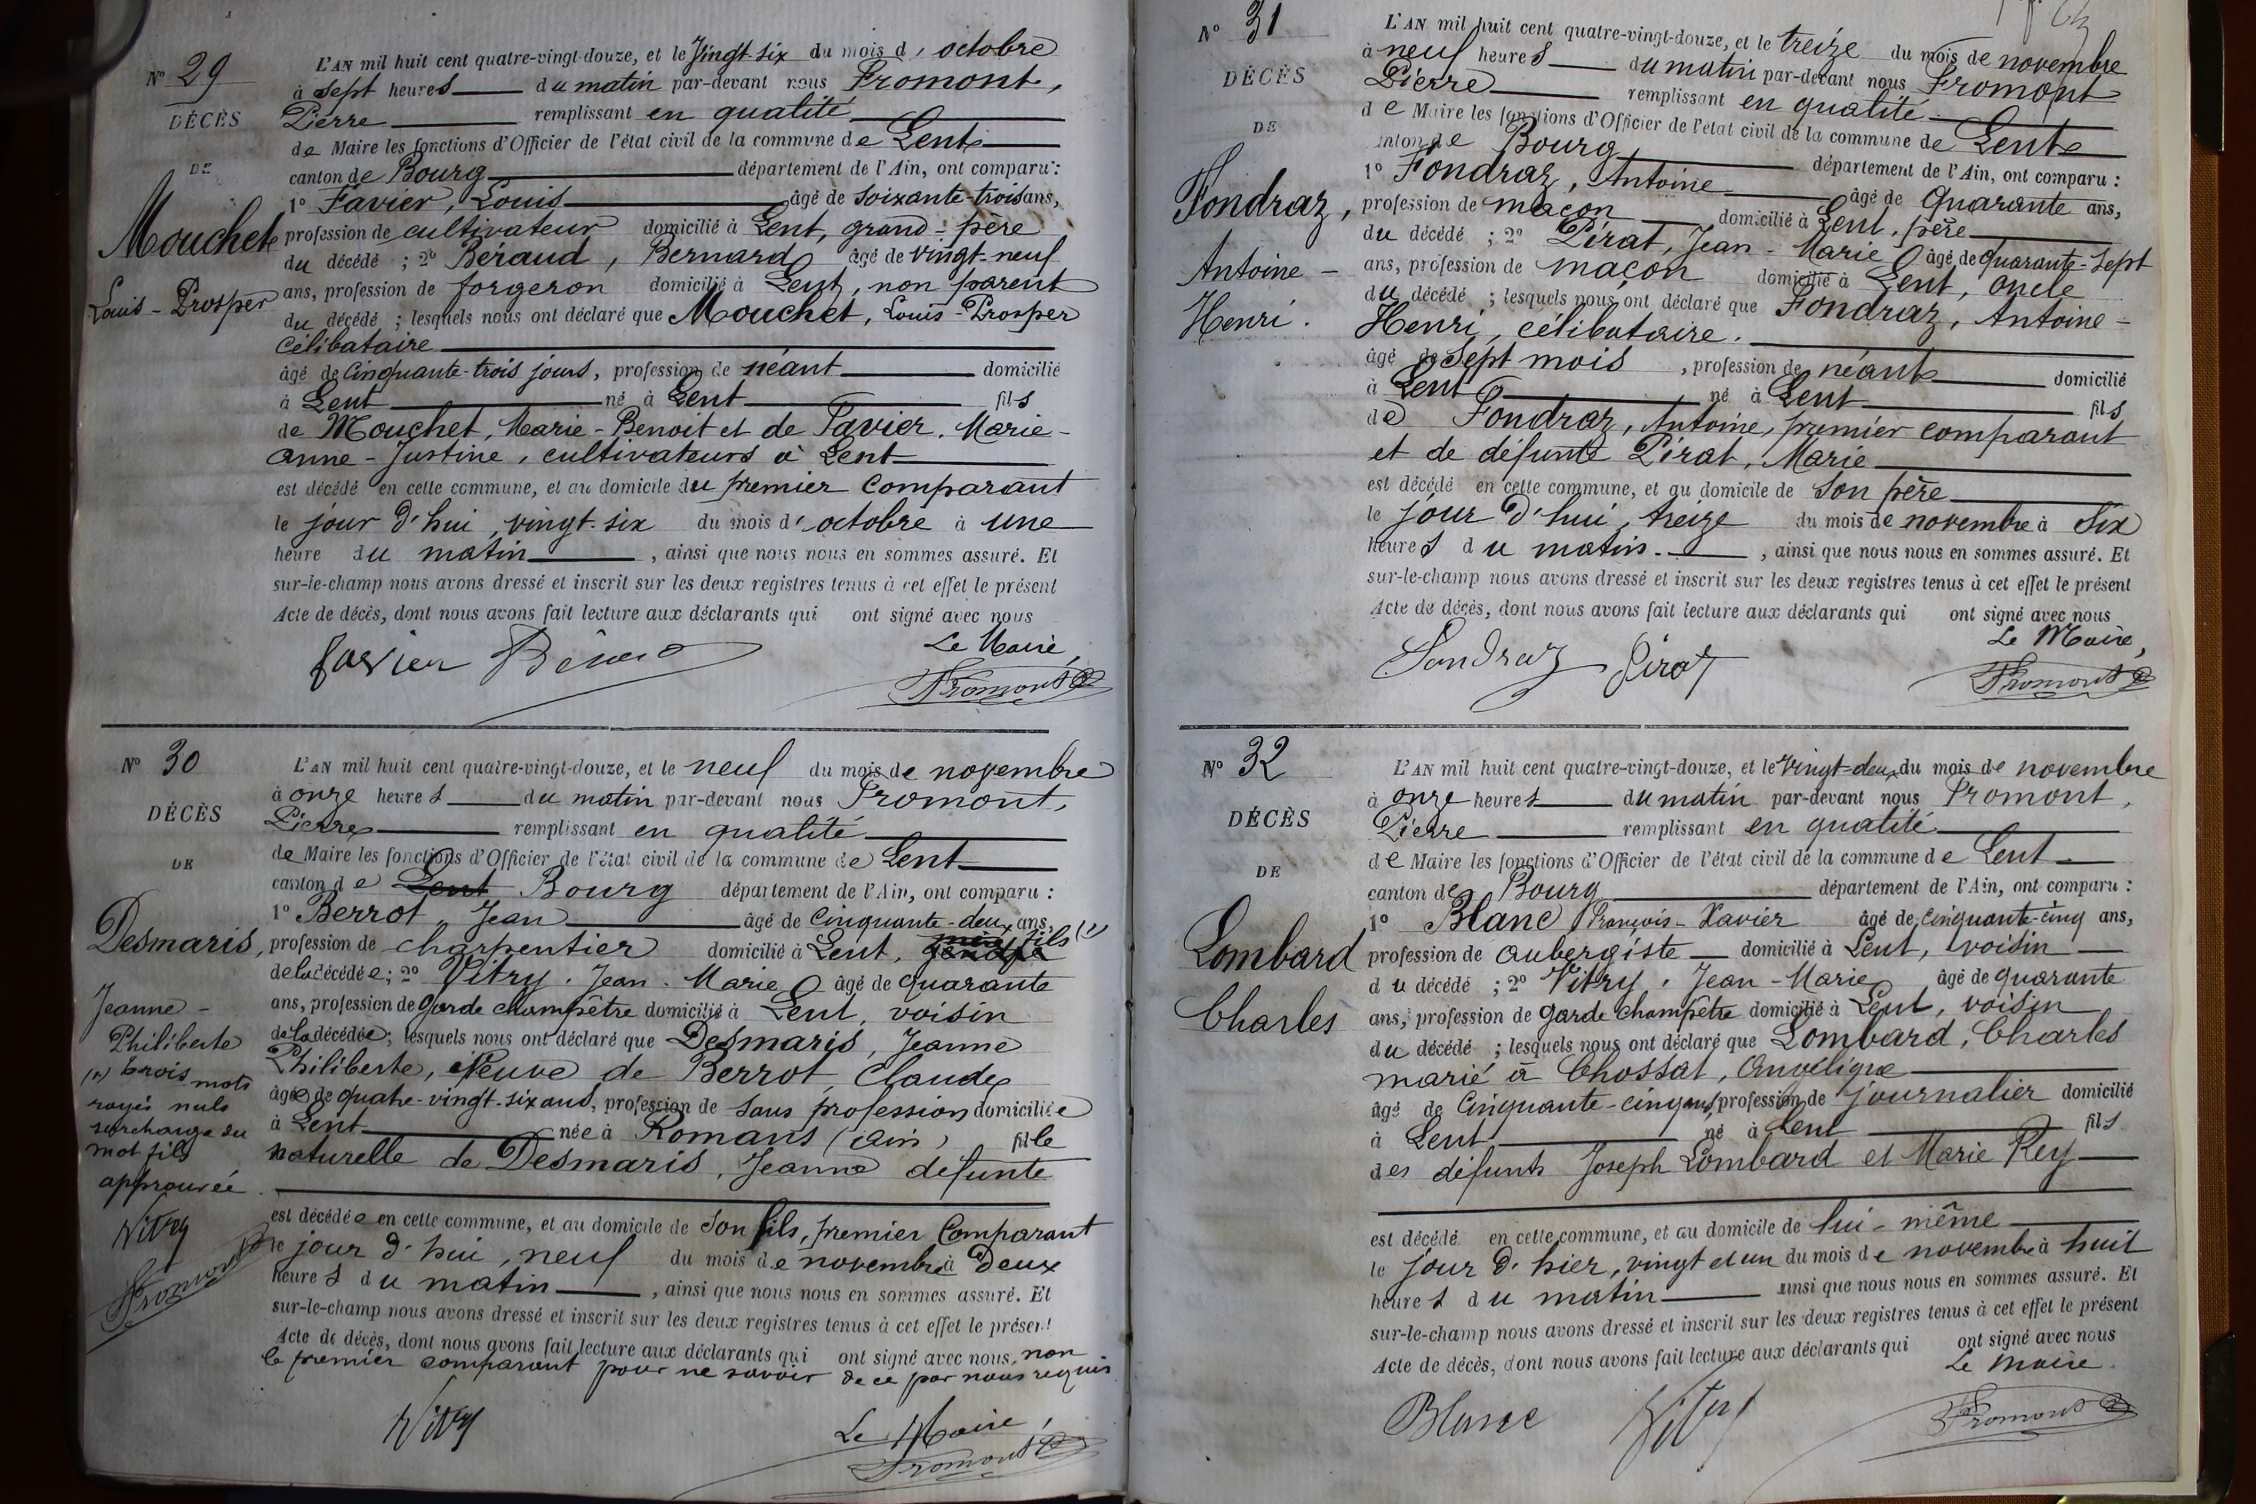 Nº 29
DÉCÈS
DE
Mouchet
Louis-Prosper
L'AN mil huit cent quatre-vingt-douze, et le Vingt-six du mois d'octobre
à sept heures du matin par-devant nous Fromont,
Pierre remplissant en qualité
de Maire les fonctions d'Officier de l'état civil de la commune de Lent
canton de Bourg département de l'Ain, ont comparu :
1º Favier, Louis âgé de soixante-trois ans,
profession de cultivateur domicilié à Lent, grand-père
du décédé ; 2º Béraud, Bernard âgé de vingt-neuf
ans, profession de forgeron domicilié à Lent, non parent
du décédé ; lesquels nous ont déclaré que Mouchet, Louis-Prosper
célibataire
âgé de cinquante-trois jours, profession de néant domicilié
à Lent né à Lent fils
de Mouchet, Marie-Benoit et de Favier, Marie-
Anne-Justine, cultivateurs à Lent
est décédé en cette commune, et au domicile du premier comparant
le jour d'hui, vingt-six du mois d'octobre à une
heure du matin, ainsi que nous nous en sommes assuré. Et
sur-le-champ nous avons dressé et inscrit sur les deux registres tenus à cet effet le présent
Acte de décès, dont nous avons fait lecture aux déclarants qui ont signé avec nous
Le Maire,
favier Béraud Fromont
Nº 30
DÉCÈS
DE
Desmaris,
Jeanne-
Philiberte
(1) trois mots
rayés nuls
surcharge du
mot fils
approuvée
Vitry
Fromont
L'AN mil huit cent quatre-vingt-douze, et le neuf du mois de novembre
à onze heures du matin par-devant nous Fromont,
Pierre remplissant en qualité
de Maire les fonctions d'Officier de l'état civil de la commune de Lent
canton de Lent Bourg département de l'Ain, ont comparu :
1º Berrot, Jean âgé de cinquante-deux ans,
profession de charpentier domicilié à Lent, gendre fils (1)
de la décédée ; 2º Vitry, Jean-Marie âgé de quarante
ans, profession de garde champêtre domicilié à Lent, voisin
de la décédée ; lesquels nous ont déclaré que Desmaris, Jeanne
Philiberte, Veuve de Berrot, Claude
âgée de quatre-vingt-six ans, profession de sans profession domiciliée
à Lent née à Romans (Ain) fille
naturelle de Desmaris, Jeanne défunte
est décédée en cette commune, et au domicile de son fils, premier comparant
le jour d'hui, neuf du mois de novembre à deux
heures du matin, ainsi que nous nous en sommes assuré. Et
sur-le-champ nous avons dressé et inscrit sur les deux registres tenus à cet effet le présent
Acte de décès, dont nous avons fait lecture aux déclarants qui ont signé avec nous, non
le premier comparant pour ne savoir de ce par nous requis
Vitry
Le Maire,
Fromont
Nº 31
DÉCÈS
DE
Fondraz,
Antoine-
Henri.
L'AN mil huit cent quatre-vingt-douze, et le treize du mois de novembre
à neuf heures du matin par-devant nous Fromont
Pierre remplissant en qualité
de Maire les fonctions d'Officier de l'état civil de la commune de Lent
canton de Bourg département de l'Ain, ont comparu :
1º Fondraz, Antoine âgé de Quarante ans,
profession de maçon domicilié à Lent, père
du décédé ; 2º Pirat, Jean-Marie âgé de quarante-sept
ans, profession de maçon domicilié à Lent, oncle
du décédé ; lesquels nous ont déclaré que Fondraz, Antoine-
Henri, célibataire.
âgé de sept mois, profession de néant domicilié
à Lent né à Lent fils
de Fondraz, Antoine, premier comparant
et de défunte Pirat, Marie
est décédé en cette commune, et au domicile de son père
le jour d'hui, treize du mois de novembre à six
heures du matin, ainsi que nous nous en sommes assuré. Et
sur-le-champ nous avons dressé et inscrit sur les deux registres tenus à cet effet le présent
Acte de décès, dont nous avons fait lecture aux déclarants qui ont signé avec nous
Le Maire,
Fondraz Pirat Fromont
Nº 32
DÉCÈS
DE
Lombard
Charles
L'AN mil huit cent quatre-vingt-douze, et le vingt-deux du mois de novembre
à onze heures du matin par-devant nous Fromont,
Pierre remplissant en qualité
de Maire les fonctions d'Officier de l'état civil de la commune de Lent
canton de Bourg département de l'Ain, ont comparu :
1º Blanc François-Xavier âgé de cinquante-cinq ans,
profession de aubergiste domicilié à Lent, voisin
du décédé ; 2º Vitry, Jean-Marie âgé de quarante
ans, profession de garde champêtre domicilié à Lent, voisin
du décédé ; lesquels nous ont déclaré que Lombard, Charles
marié à Chossat, Angélique
âgé de cinquante-cinq ans, profession de journalier domicilié
à Lent né à Lent fils
des défunts Joseph Lombard et Marie Rey
est décédé en cette commune, et au domicile de lui-même
le jour d'hier, vingt et un du mois de novembre à huit
heures du matin ainsi que nous nous en sommes assuré. Et
sur-le-champ nous avons dressé et inscrit sur les deux registres tenus à cet effet le présent
Acte de décès, dont nous avons fait lecture aux déclarants qui ont signé avec nous
Le Maire.
Blanc Vitry Fromont